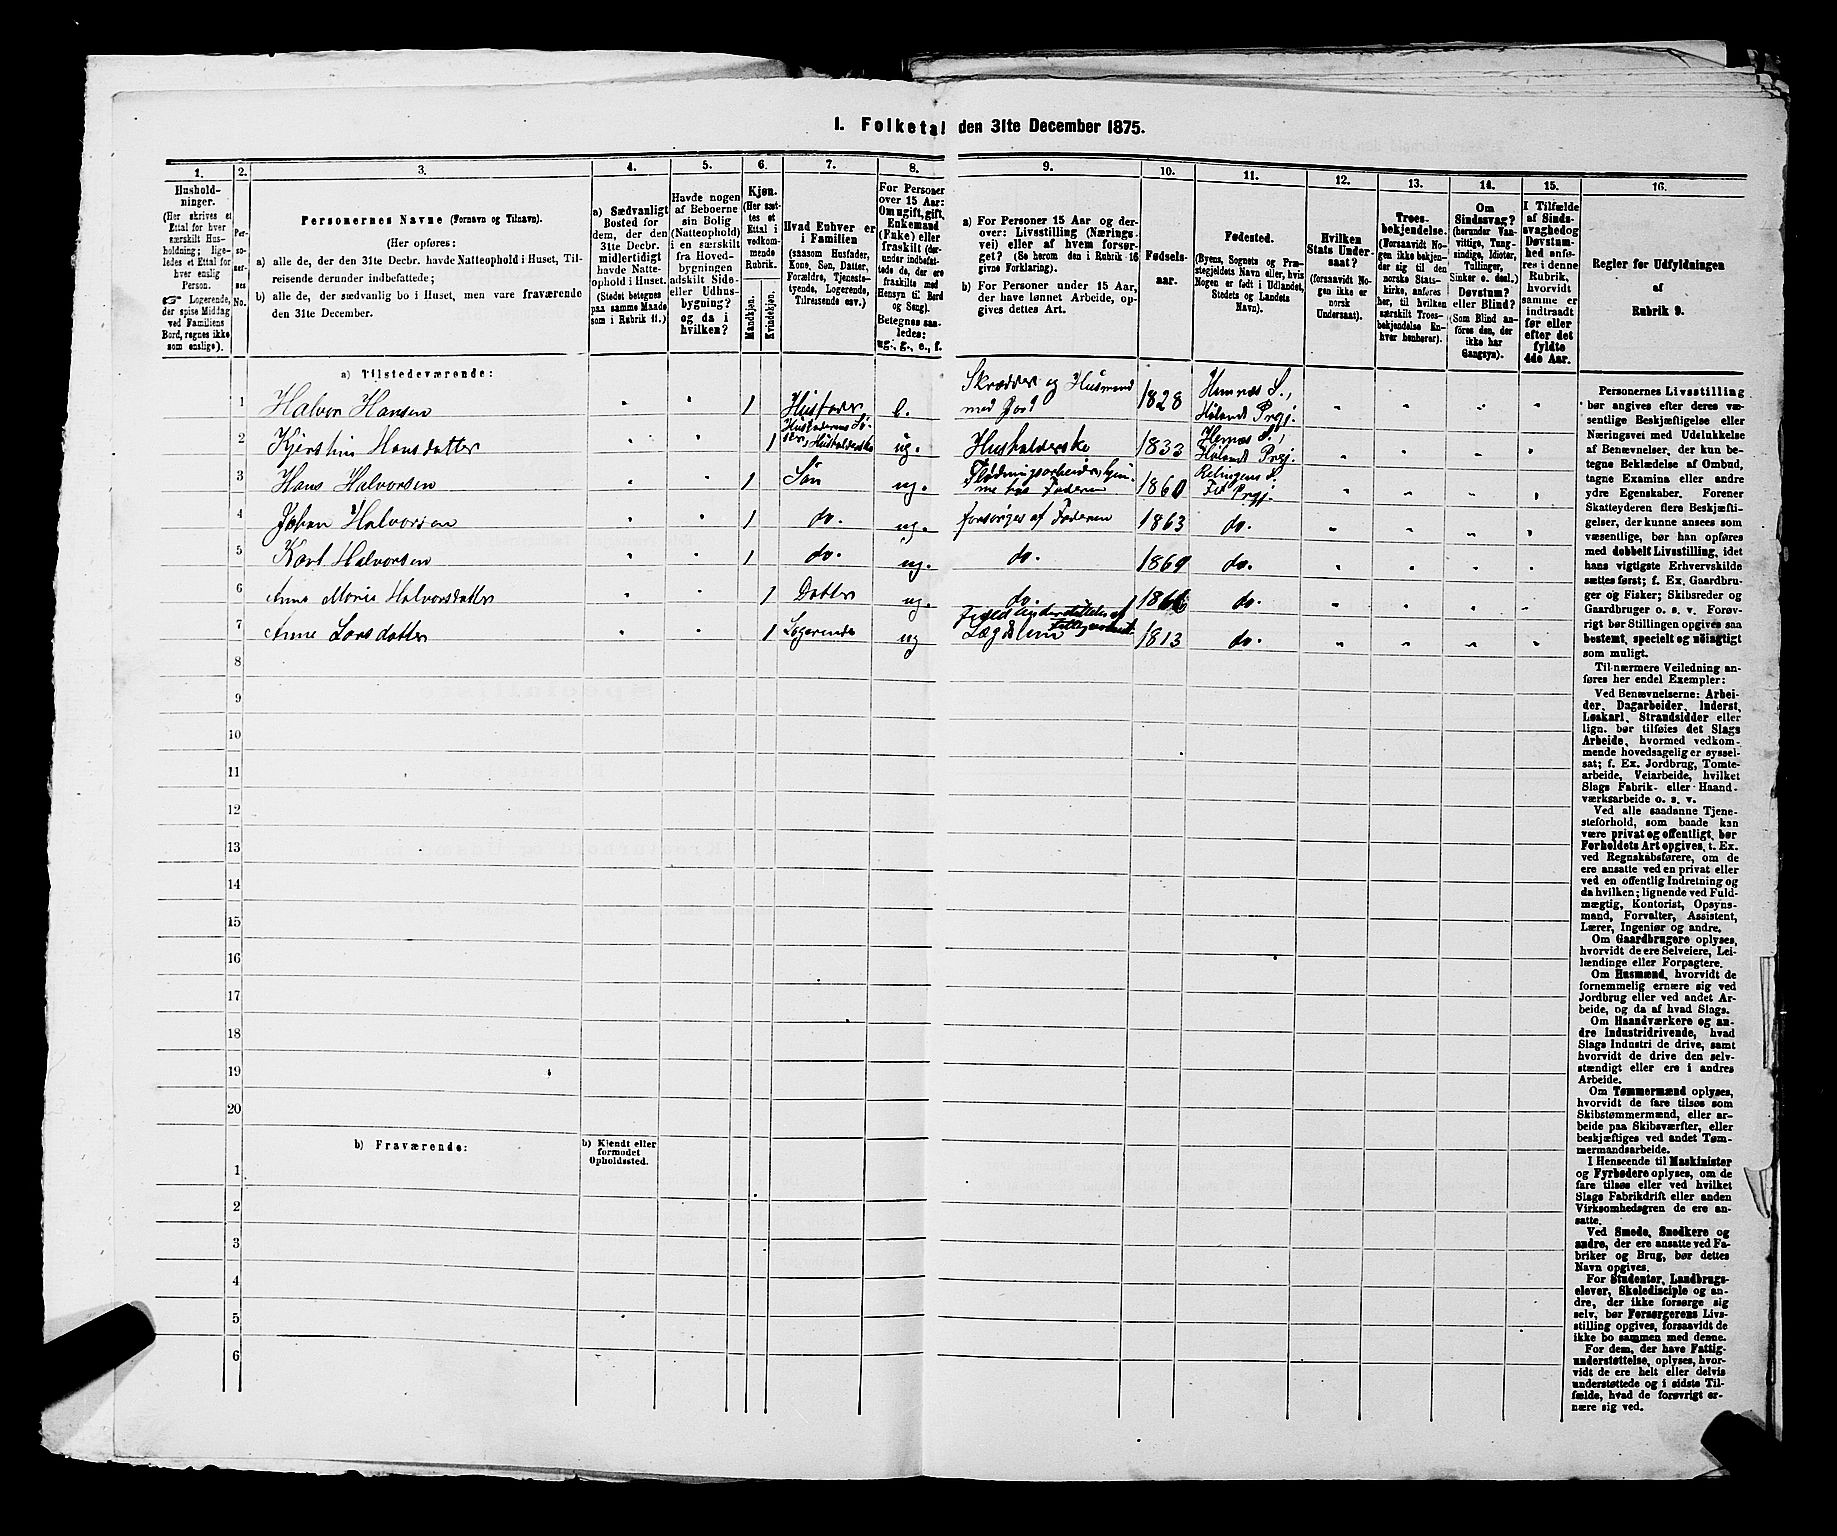 I. Folketal den 31te December 1875.
1. 2. 3. 4. 5. 6. 7. 8. 9. 10. 11. 12. 13. 14. 15. 16.
Hushold-
ninger.
(Her skrives et
Ettal for hver
særskilt Hus-
holdning; lige-
ledes et Ettal for
hver enslig
Person.
☞ Logerende,
der spise Middag
ved Familiens
Bord, regnes ikke
som enslige).
Per-
so-
ner-
nes
No.
Personernes Navne (Fornavn og Tilnavn).
(Her opføres:
a) alle de, der den 31te Decbr. havde Natteophold i Huset, Til-
reisende derunder indbefattede;
b) alle de, der sædvanlig bo i Huset, men vare fraværende
den 31te December.
a) Sædvanligt
Bosted for
dem, der den
31te Decbr.
midlertidigt
havde Natte-
ophold i Huset.
(Stedet betegnes
paa samme Maade
som i Rubrik 11.)
Havde nogen
af Beboerne
sin Bolig
(Natteophold)
i en særskilt
fra Hoved-
bygningen
adskilt Side-
eller Udhus-
bygning?
og da i
hvilken?
Kjøn.
(Her sæt-
tes et
Ettal i
vedkom-
mende
Rubrik.
Mandkjøn.
Kvindekjøn.
Hvad Enhver er
i Familien
(saasom Husfader,
Kone, Søn, Datter,
Forældre, Tjeneste-
tyende, Logerende,
Tilreisende osv.)
For Personer
over 15 Aar:
Om ugift, gift,
Enkemand
(Enke) eller
fraskilt (der-
under indbefat-
tede de, der ere
fraskilte med
Hensyn til Bord
og Seng).
Betegnes saa-
ledes:
ug., g., e., f.
a) For Personer 15 Aar og der-
over: Livsstilling (Nærings-
vei) eller af hvem forsør-
get? (Se herom den i Rubrik 16
givne Forklaring).
b) For Personer under 15 Aar,
der have lønnet Arbeide, op-
gives dettes Art.
Fødsels-
aar.
Fødested.
(Byens, Sognets og Præ-
stegjeldets Navn eller, hvis
Nogen er født i Udlandet,
Stedets og Landets
Navn).
Hvilken
Stats Under-
saat?
(forsaavidt No-
gen ikke er
norsk
Undersaat).
Troes-
bekjendelse.
(Forsaavidt No-
gen ikke bekjen-
der sig til den
norske Stats-
kirke, anføres
her, til hvilken
særskilt Troes-
bekjendelse En-
hver henhører).
Om
Sindssvag?
(herunder Van-
vittige, Tung-
sindige, Idioter,
Tullinger,
Sinker o. desl.)
Døvstum?
eller Blind?
(Som Blind an-
føres den, der
ikke har
Gangsyn).
I Tilfælde
af Sinds-
svaghed og
Døvstum-
hed anfø-
res i denne
Rubrik,
hvorvidt
samme er
indtraadt
før eller
efter det
fyldte
4de Aar.
Regler for Udfyldningen
af
Rubrik 9.
a) Tilstedeværende:
1 Halvor Hansen 1 Husfader e. Skrædder og Husmand med Jord 1828 Hemnæs S., Hølands Prgj.
2 Kjerstin Hansdatter 1 Husfaderens Sø-ster, Husholderske ug. Husholderske 1833 Hemnæs S., Hølands Prgj.
3 Hans Halvorsen 1 Søn ug. Flødningsarbeider, hjem-me hos Faderen 1860 Relingens S. Fet Prgj.
4 Johan Halvorsen 1 do. ug. forsørges af Faderen 1863 do.
5 Karl Halvorsen 1 do. ug. do. 1869 do.
6 Anne Marie Halvorsdatter 1 Datter ug. do. 1866 do.
7 Anne Larsdatter 1 Logerende ug Lægdslem 1813 do.
8
9
10
11
12
13
14
15
16
17
18
19
20
b) Fraværende:
b) Kjendt eller
formodet
Opholdssted.
1
2
3
4
5
6
Personernes Livsstilling
bør angives efter deres væ-
sentlige Beskjæftigelse eller
Næringsvei med Udelukkelse
af Benævnelser, der kun be-
tegne Beklædelse af Ombud,
tagne Examina eller andre
ydre Egenskaber. Forener
Skatteyderen flere Beskjæfti-
gelser, der kunne ansees som
væsentlige, bør han opføres
med dobbelt Livsstilling, idet
hans vigtigste Erhvervskilde
sættes først; f. Ex. Gaardbru-
ger og Fisker; Skibsreder og
Gaardbruger o. s. v. Forøv-
rigt bør Stillingen opgives saa
bestemt, specielt og nöiagtigt
som muligt.
Til nærmere Veiledning an-
føres her endel Exempler:
Ved Benævnelserne: Arbei-
der, Dagarbeider, Inderst,
Løskarl, Strandsidder eller
lign. bør tilføies det Slags
Arbeide, hvormed vedkom-
mende hovedsagelig er syssel-
sat; f. Ex. Jordbrug, Tomte-
arbeide, Veiarbeide, hvilket
Slags Fabrik- eller Haand-
værksarbeide o. s. v.
Ved alle saadanne Tjene-
steforhold, som baade kan
være privat og offentligt, bør
Forholdets Art opgives, t. Ex.
ved Regnskabsførere, om de
ere ansatte ved en privat eller
ved en offentlig Indretning og
da hvilken; lignende ved Fuld-
mægtig, Kontorist, Opsyns-
mand, Forvalter, Assistent,
Lærer, Ingeniør og andre.
Om Gaardbrugere oplyses,
hvorvidt de ere Selveiere, Lei-
lændinge eller Forpagtere.
Om Husmænd, hvorvidt de
fornemmelig ernære sig ved
Jordbrug eller ved andet Ar-
beide, og da af hvad Slags.
Om Haandværkere og an-
dre Industridrivende, hvad
Slags Industri de drive, samt
hvorvidt de drive den selv-
stændigt eller ere i andres
Arbeide.
Om Tømmermænd oplyses,
hvorvidt de fare tilsøs som
Skibstømmermænd, eller ar-
beide paa Skibsværfter, eller
beskjæftiges ved andet Tøm-
mermandsarbeide.
I Henseende til Maskinister
og Fyrbødere oplyses, om de
fare tilsøs eller ved hvilket
Slags Fabrikdrift eller anden
Virksomhedsgren de ere an-
satte.
Ved Smede, Snedkere og
andre, der ere ansatte ved Fa-
briker og Brug, bør dettes
Navn opgives.
For Studenter, Landbrugs-
elever, Skoledisciple og an-
dre, der ikke forsørge sig
selv, bør Forsørgerens Livs-
stilling opgives, forsaavidt de
ikke bo sammen med denne.
For dem, der have Fattig-
understøttelse, oplyses, hvor-
vidt de ere helt eller delvis
understøttede og i sidste Til-
fælde, hvad de forøvrigt er-
nære sig ved.